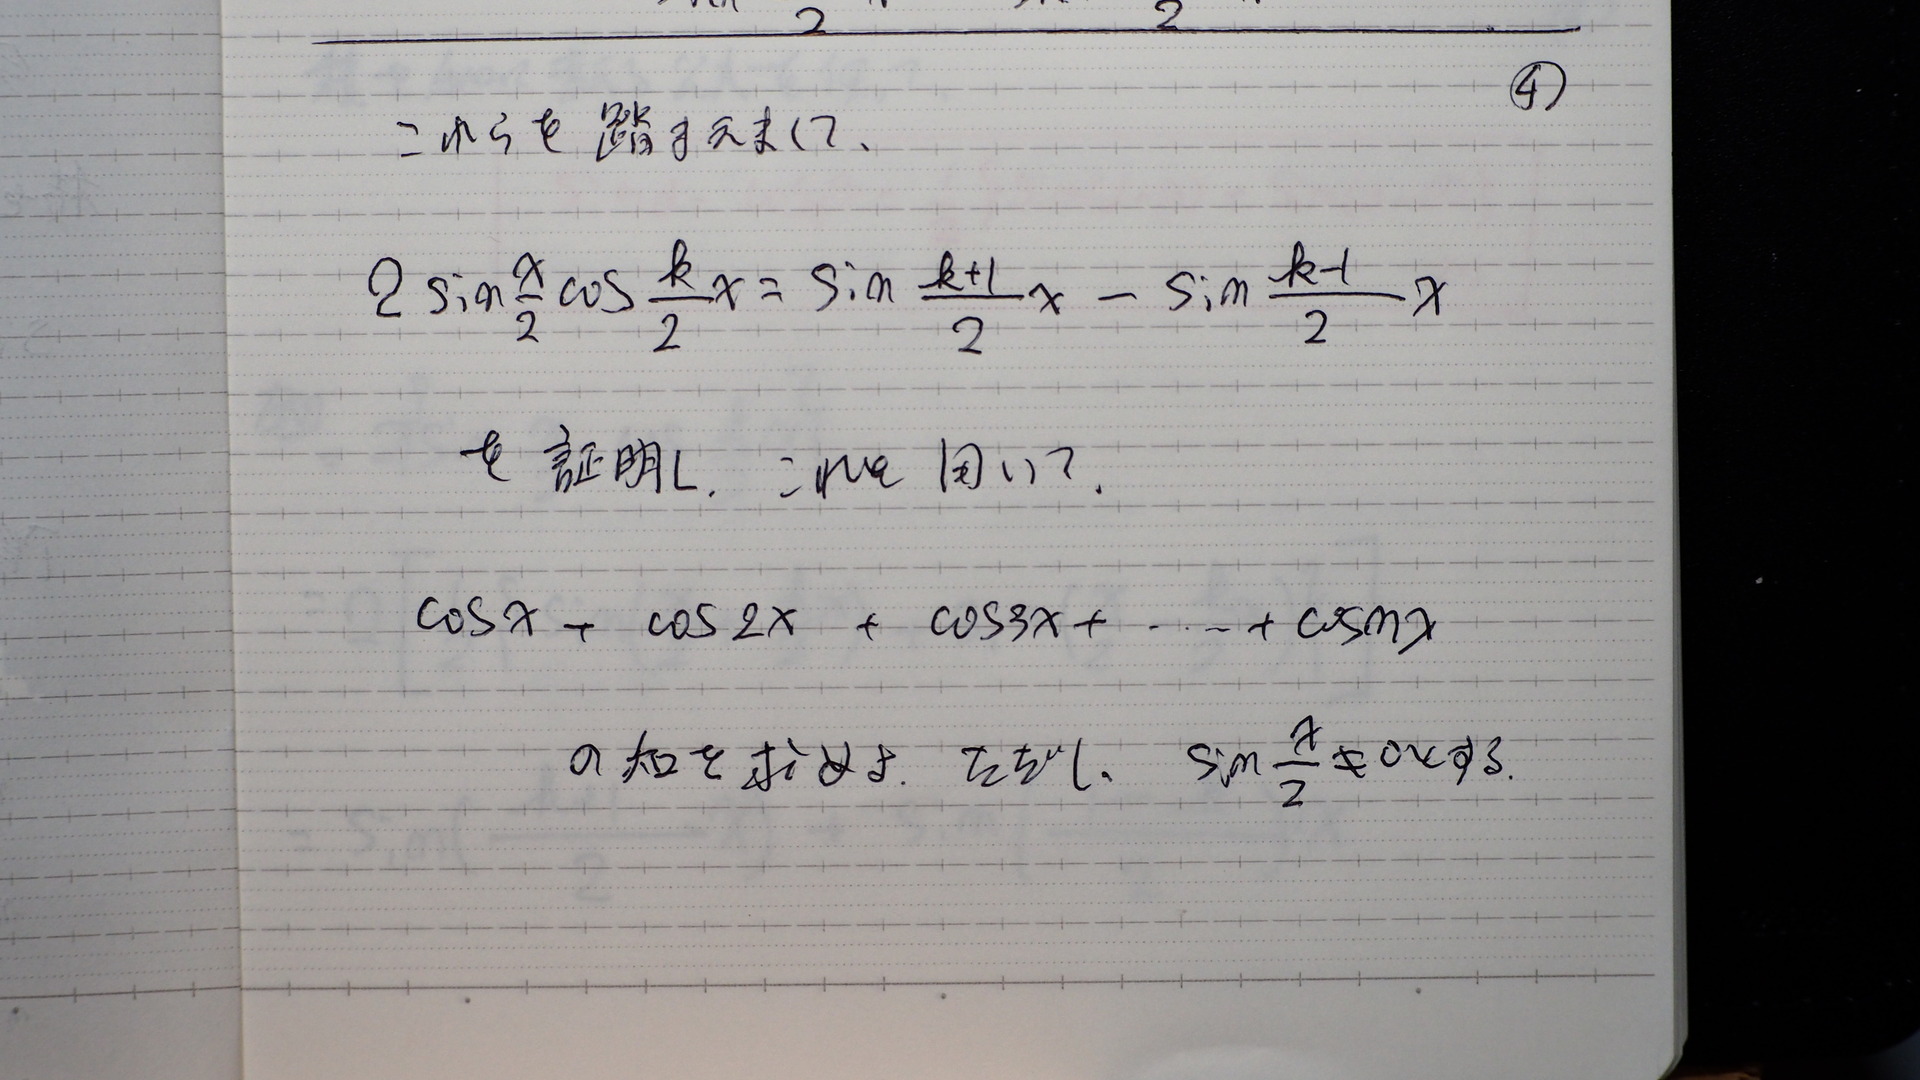 2 2
④
これらを踏まえまして、
2 sin x/2 cos k/2 x = sin k+1/2 x − sin k-1/2 x
を証明し、これを用いて、
cosx + cos2x + cos3x + ····· + cosnx
の和を求めよ. ただし、 sin x/2 ≠ 0とする.